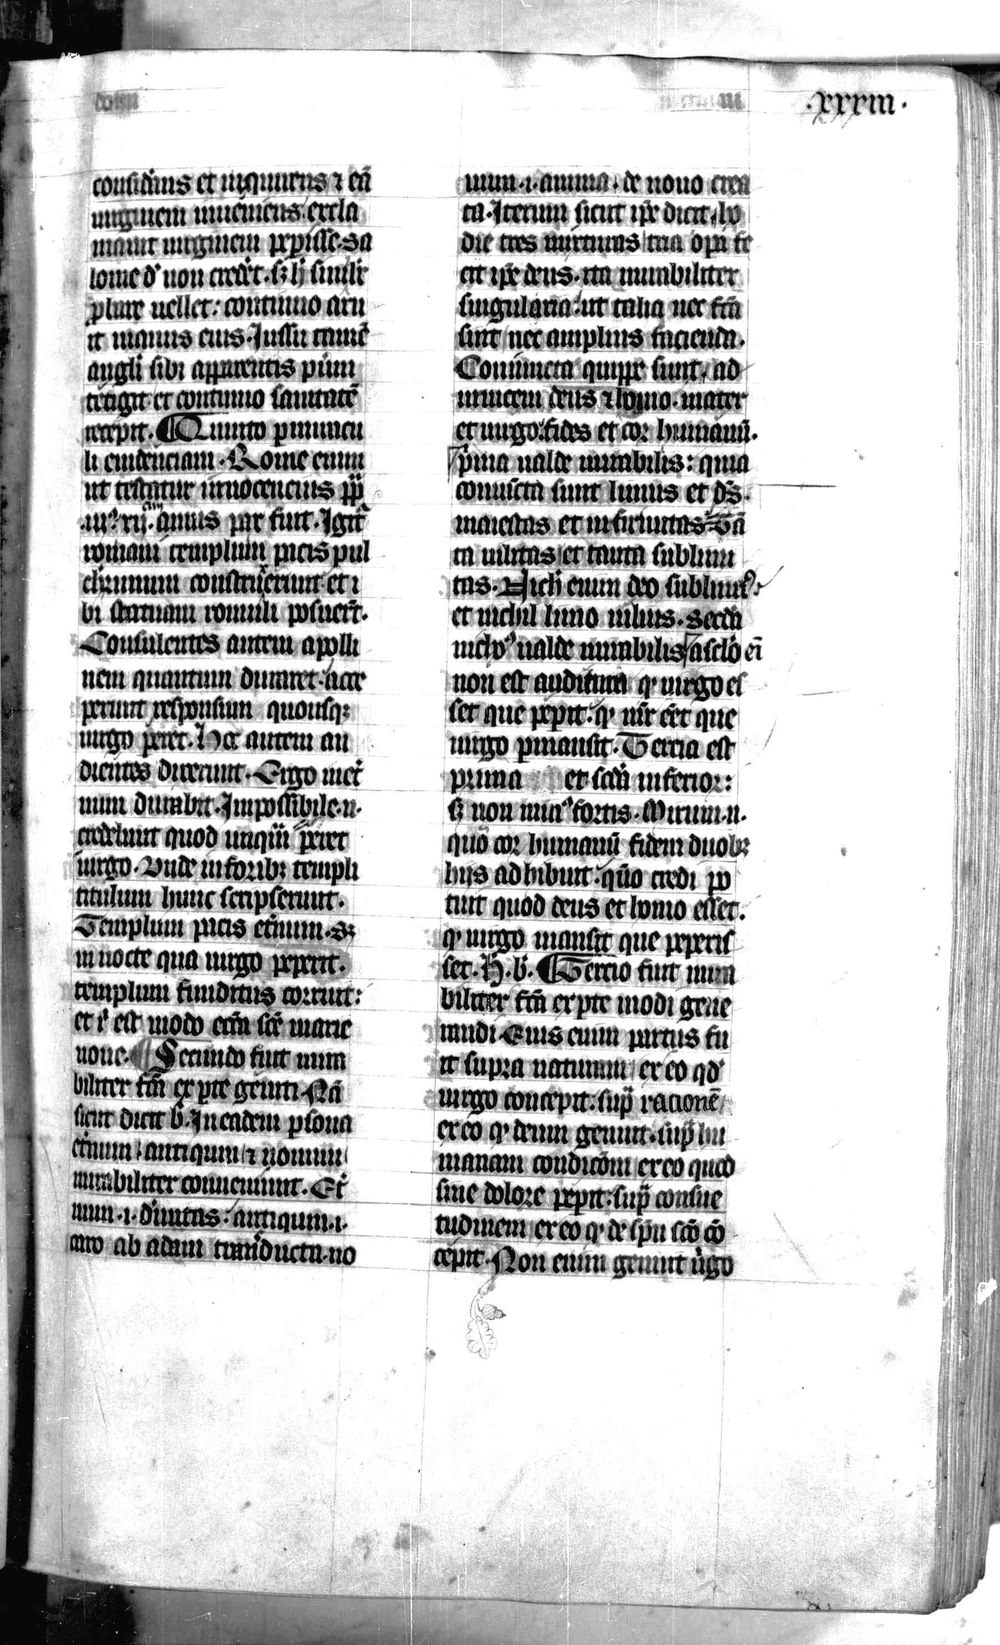 ·xxxiii·
considerans et inquirens ⁊ eā
uirginem inueniens· excla
mauit uirginem peperisse· Sa
lome dꝰ non credēs· sꝫ h̄ simil̄r
ꝓbare uellet: continuo aru
it manus eius· Iussu tamē
angl̄i sibi apparentis puerū
tetigit et continuo sanitatē
recepit· Quinto per miracu
li euidenciam· Rome enim
ut testatur innocencius pp̄
·iijꝰ· xij· annis pax fuit· Igit̄
romani templum pacis pul
cherrimum construxerunt et i
bi statuam romuli posuer̄t·
Consulentes autem apolli
nem quantum duraret· acce
perunt responsum quousqꝫ
uirgo pareret· Hec autem au
dientes dixerunt· Ergo in et̄
num durabit· Impossibile· n·
crediderunt quod unquam pareret
uirgo· Unde in foribꝫ templi
titulum hunc scripserunt·
Templum pacis et̄num· Sꝫ
in nocte qua uirgo peperit·
templum funditus corruit:
et ī est modo ecc̄a sc̄e marie
noue· Secundo fuit mira
biliter fc̄m ex p̱te geniti· Nā
sicut dicit b̄· In eadem ꝑsona
et̄num antiquum ⁊ nouum
mirabiliter conuenerunt· Et̄
num ·i· diuinitas: antiquum ·i·
caro ab adam traducta· no
uum ·i· anima· de nouo crea
ta· Iterum sicut ip̄e dicit· ho
die tres mixturas tria opera fe
cit ip̄e deus· ita mirabiliter
singularia· ut talia nec fc̄a
sint nec amplius facienda·
Coniuncta quippe sunt ad
inuicem deus ⁊ homo· mater
et uirgo· fides et cor humanū·
prima ualde mirabilis: quia
coniuncta sunt limus et ds̄·
maiestas et infirmitas· Tā
ta uilitas et tanta sublimi
tas· Nichil enim deo sublimiꝰ
et nichil limo uilius· Secda
nichoꝰ ualde mirabilis a sclo eī
non est auditum qꝫ uirgo es
set que peperit· qꝫ mr̄ eēt que
uirgo permansit· Tercia est
prima et scd̄a inferior:
sꝫ non minꝰ fortis· Mirum· n·
quō cor humanū fidem duobꝫ
hiis adhibuit· quō credi po
tuit quod deus et homo esset·
qꝫ uirgo mansit que peperis
set· H· b· Tercio fuit mira
biliter fc̄m ex p̱te modi gene
randi· Eius enim partus fu
it supra naturam ex eo qd̄
uirgo concepit· sup̄ racionē
ex eo qꝫ deum genuit· sup̄ hu
manam condicōem ex eo quod
sine dolore peperit· sup̄ consue
tudinem ex eo qꝫ de sp̄u sc̄o cō
cepit· Non enim genuit uirgo